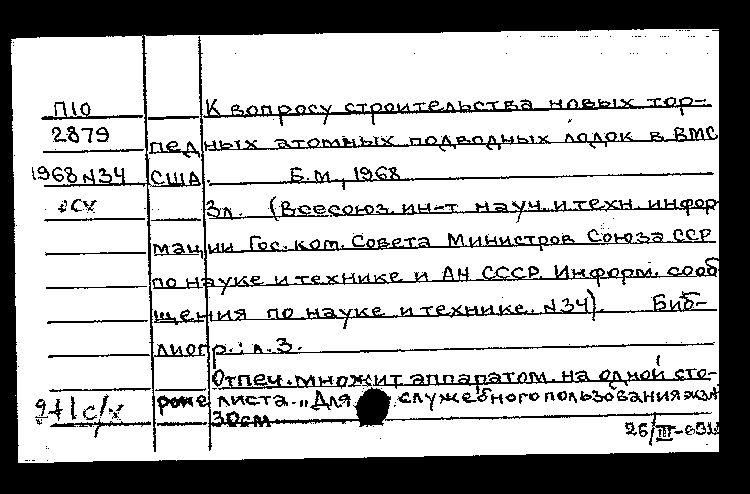 П10 К вопросу строительства новых тор-
2879 педных атомных подводных лодок в ВМС
1968 N34 США. Б.М., 1968
сх 3л. (Всесоюз. ин-т науч. и техн. инфор
мации Гос. ком. Совета Министров Союза ССР
по науке и технике и АН СССР. Информ. сооб
щения по науке и технике. N34). Биб-
лиогр.: л. 3.
Отпеч. множит аппаратом. на одной сто-
941с/х роне листа. „Для служебного пользования
30см
26/III-